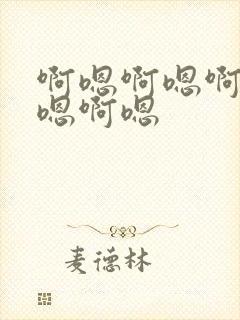 啊嗯啊嗯啊
嗯啊嗯
麦德林